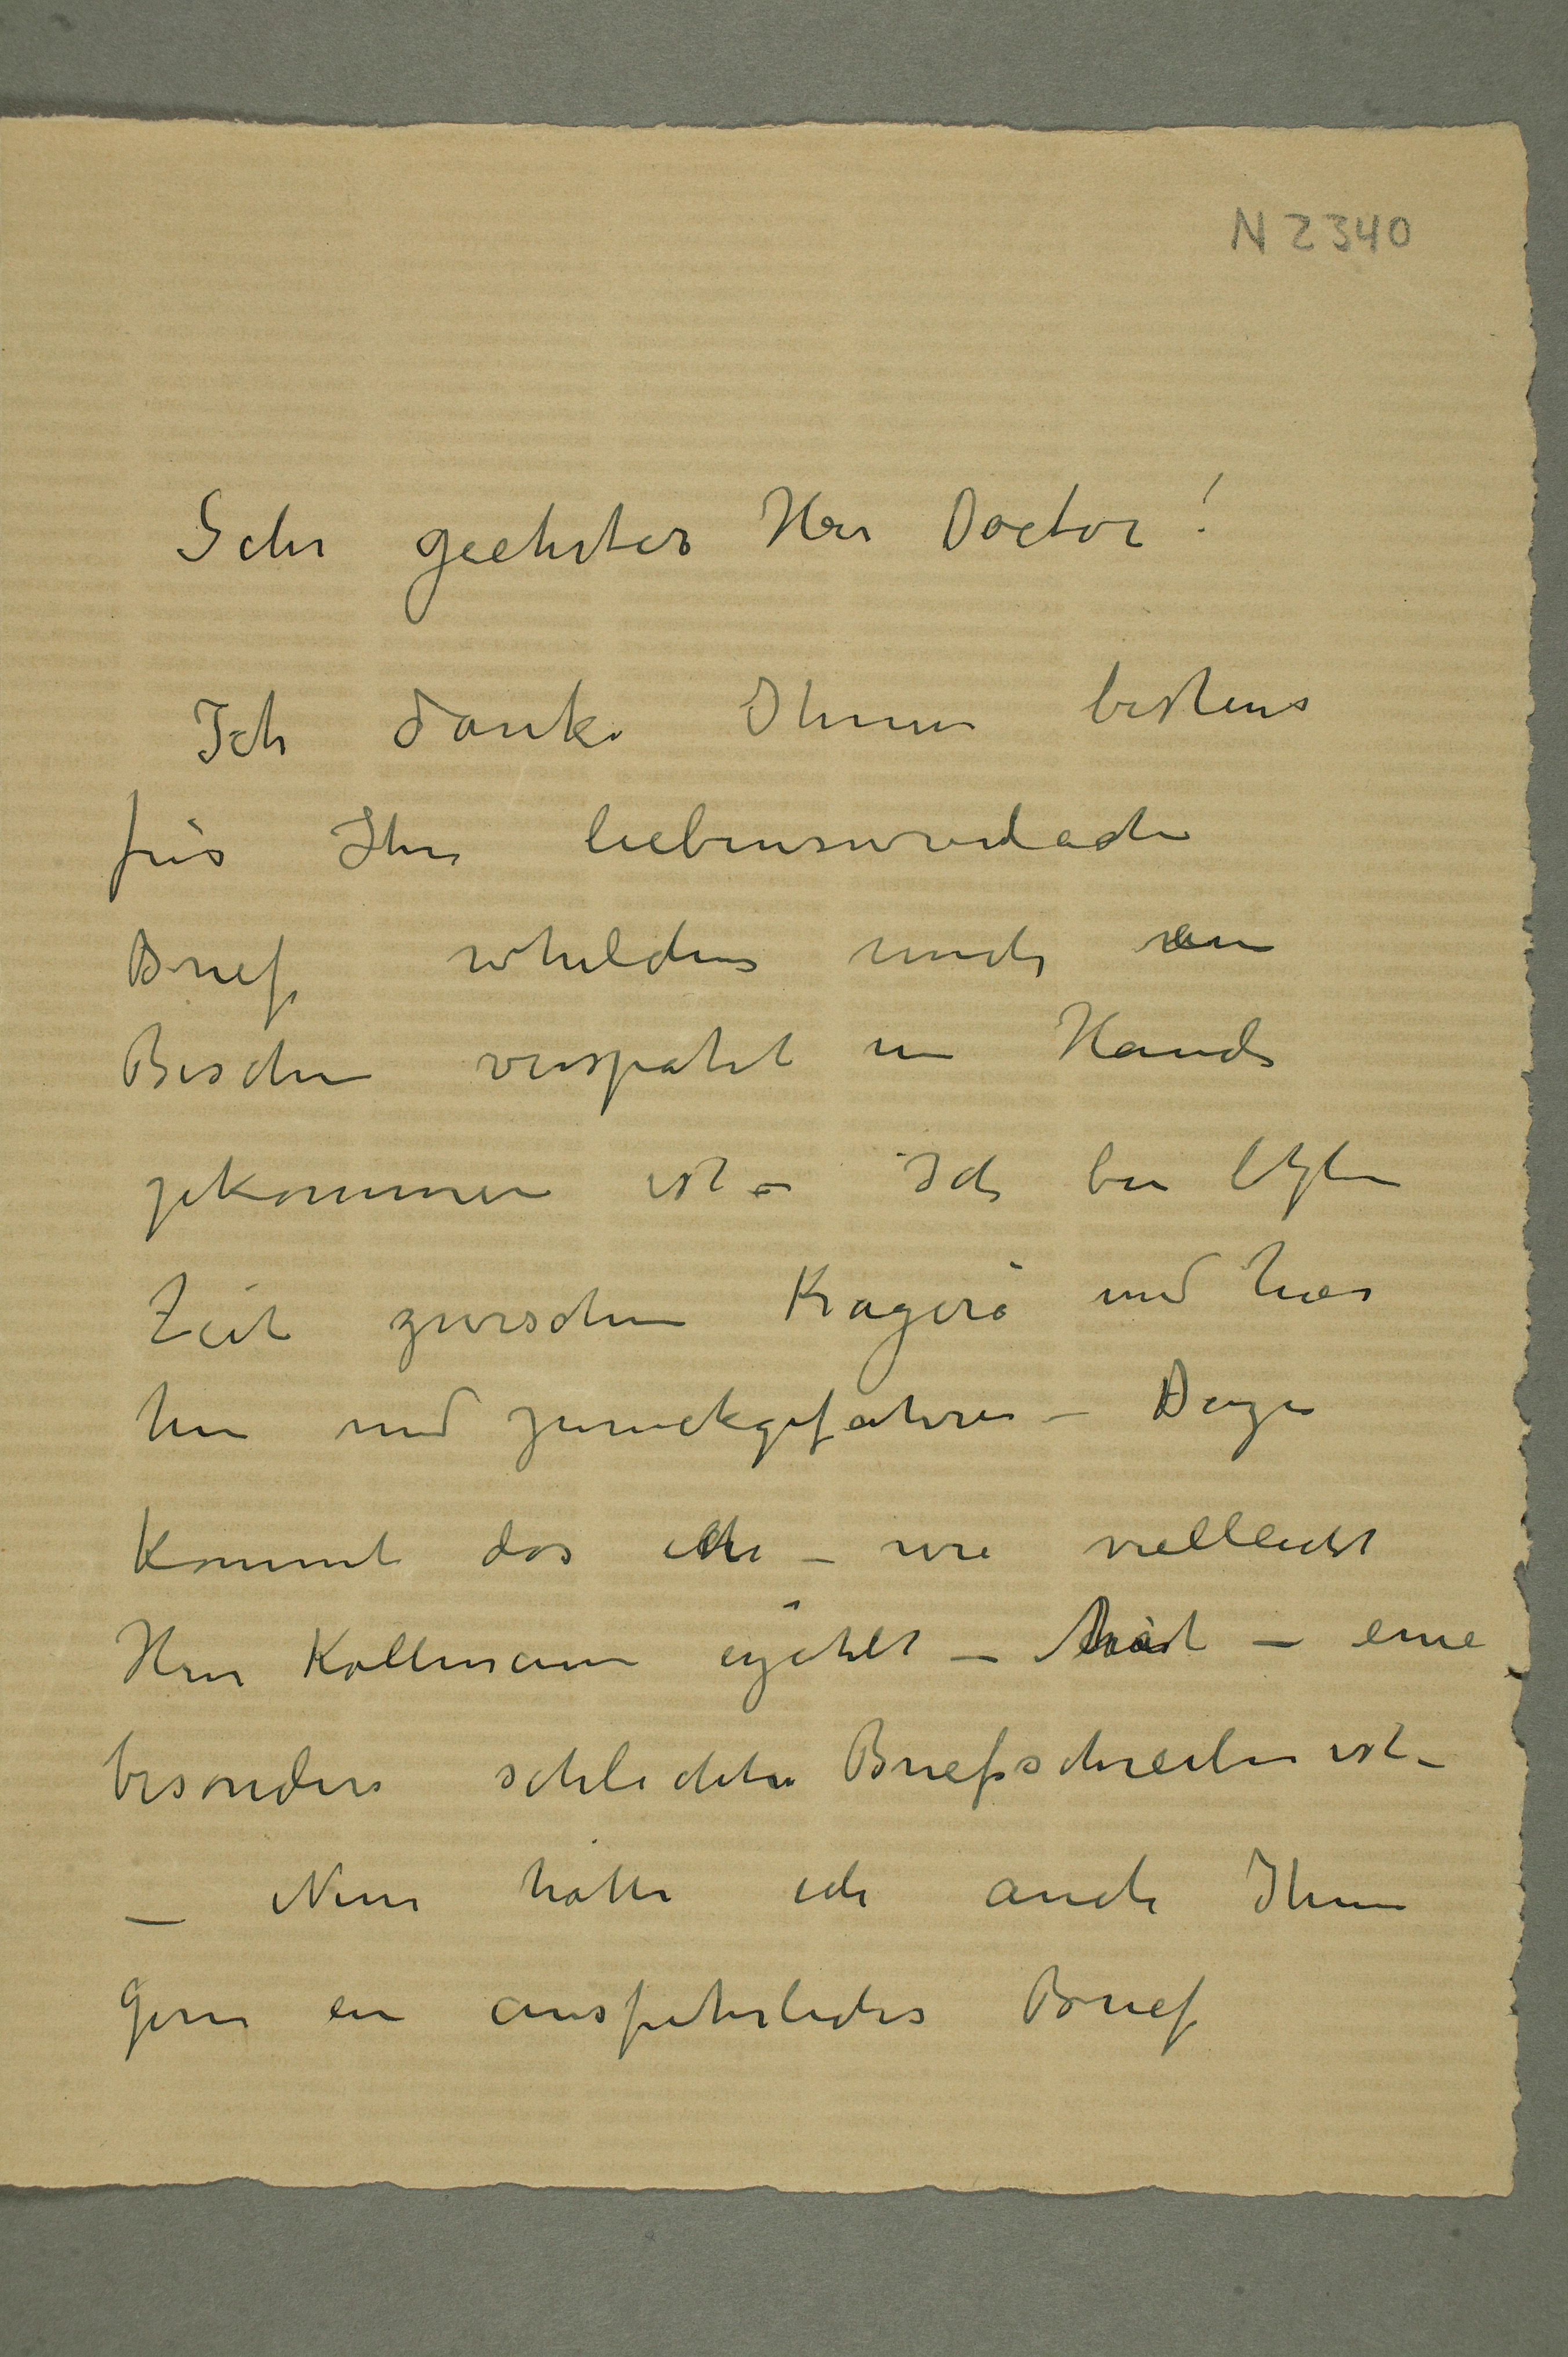 N 2340
Sehr geehrter Herr Doctor!
Ich danke Ihnen bestens
für Ihre liebenswerdache
Brief, whelches mich ein
Bischen verspätet in Hande
gekommen ist – Ich bin letzten
Zeit zwischen Kragerö und hier
hin und zurückgefahren – Dazu
kommt das ich – wie vielleicht
Herr Kollmann erzählt – hat – eine
besonders schlechter Briefschreiber ist –
– Nun hätte ich auch Ihnen
gern ein ausfuhrliches Brief